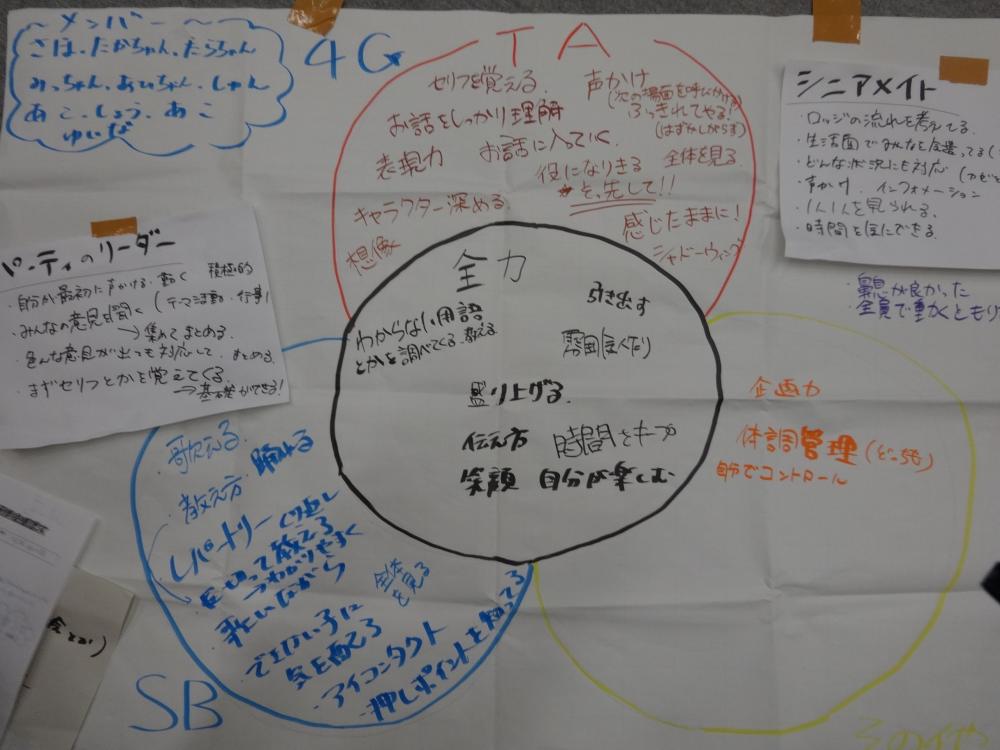 ～メンバー～
さほ、たかちゃん、たらちゃん
みっちゃん、あいちゃん、しゃん
あこ、しょう、あこ
ゆいな
4G
TA
セリフを覚える
声かけ
(次の場面を呼びかけ)
お話をしっかり理解
ふっきれてやる!
(はずかしがらず)
表現力
お話に入っていく
役になりきる
全体を見る
率先して!!
キャラクター深める
感じたままに!
想像
シャドーウィング
シニアメイト
・ロッジの流れを考えてる
・生活面でみんなを
・どんな状況にも対応
・声かけ、インフォメーション
・1人1人を見られる
・時間を気にできる
雰囲気が良かった
全員で動くともり
パーティのリーダー
・自分が最初に声かける・動く 積極的
・みんなの意見を聞く (テーマ活動・行事)
→集めてまとめる
・色んな意見が出ても対応して、まとめる
・まずセリフとかを覚えてくる
→基礎ができる!
全力
わからない用語
とかを調べてくる、教える
引き出す
雰囲気作り
盛り上げる
伝え方
時間をキープ
笑顔
自分が楽しむ
企画力
体調管理
自分でコントロール
歌える
踊れる
・教え方
レパートリー
区切って教える
わかりやすく
歌いながら
全体を見る
できない子に
気を配る
・アイコンタクト
・押しポイントを知ってる
SB
その他